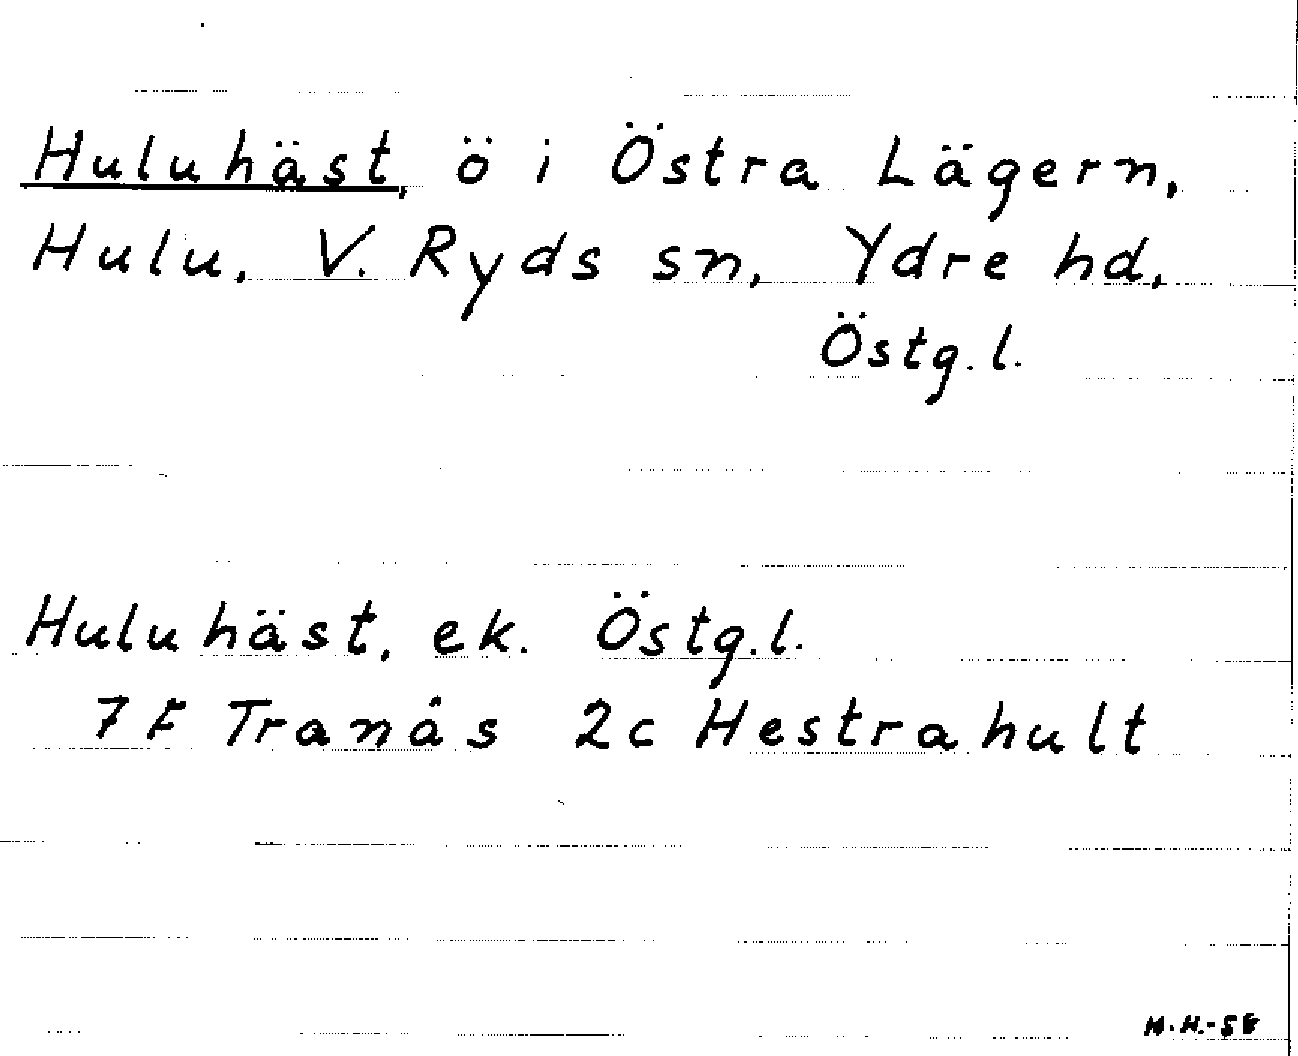 Huluhäst, ö i Östra Lägern,
Hulu, V. Ryds sn, Ydre hd,
Östg. l.
Huluhäst, ek. Östg. l.
7 F Tranås 2c Hestrahult